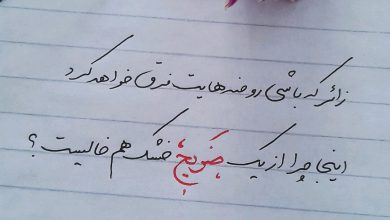 زائر که باشی روضه‌هایت فرق خواهد کرد
اینجا چرا از یک ضریح خشک هم خالیست؟